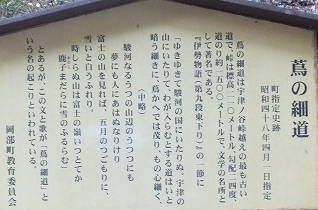 蔦の細道
町指定史跡
昭和四十八年四月一日指定
蔦の細道は宇津ノ谷峠越えの最も古い
道で、峠は標高二一〇メートル、勾配二四度、
道のり約一五〇〇メートルで、文学の名所と
して著名である。
『伊勢物語(第九段東下り)』の一節に
「ゆきゆきて駿河の国にいたりぬ。宇津の
山にいたりてわが入らむとする道はいと
暗う細きに、蔦かへでは茂り、もの心細く、
(中略)
駿河なるうつの山辺のうつつにも
夢にも人にあはぬなりけり
富士の山を見れば、五月のつごもりに、
雪いと白うふれり。
時しらぬ山は富士の嶺いつとてか
鹿子まだらに雪のふるらむ」
とあるが、この文と歌が「蔦の細道」と
いう名の起こりといわれている。
岡部町教育委員会